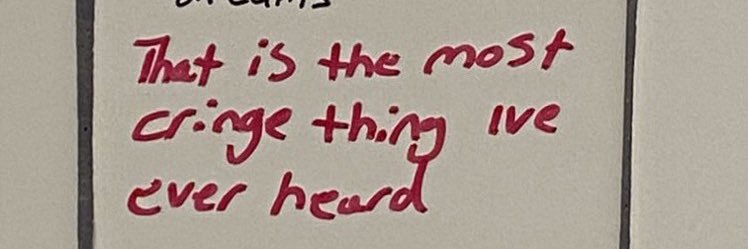 dreams
That is the most
cringe thing Ive
ever heard